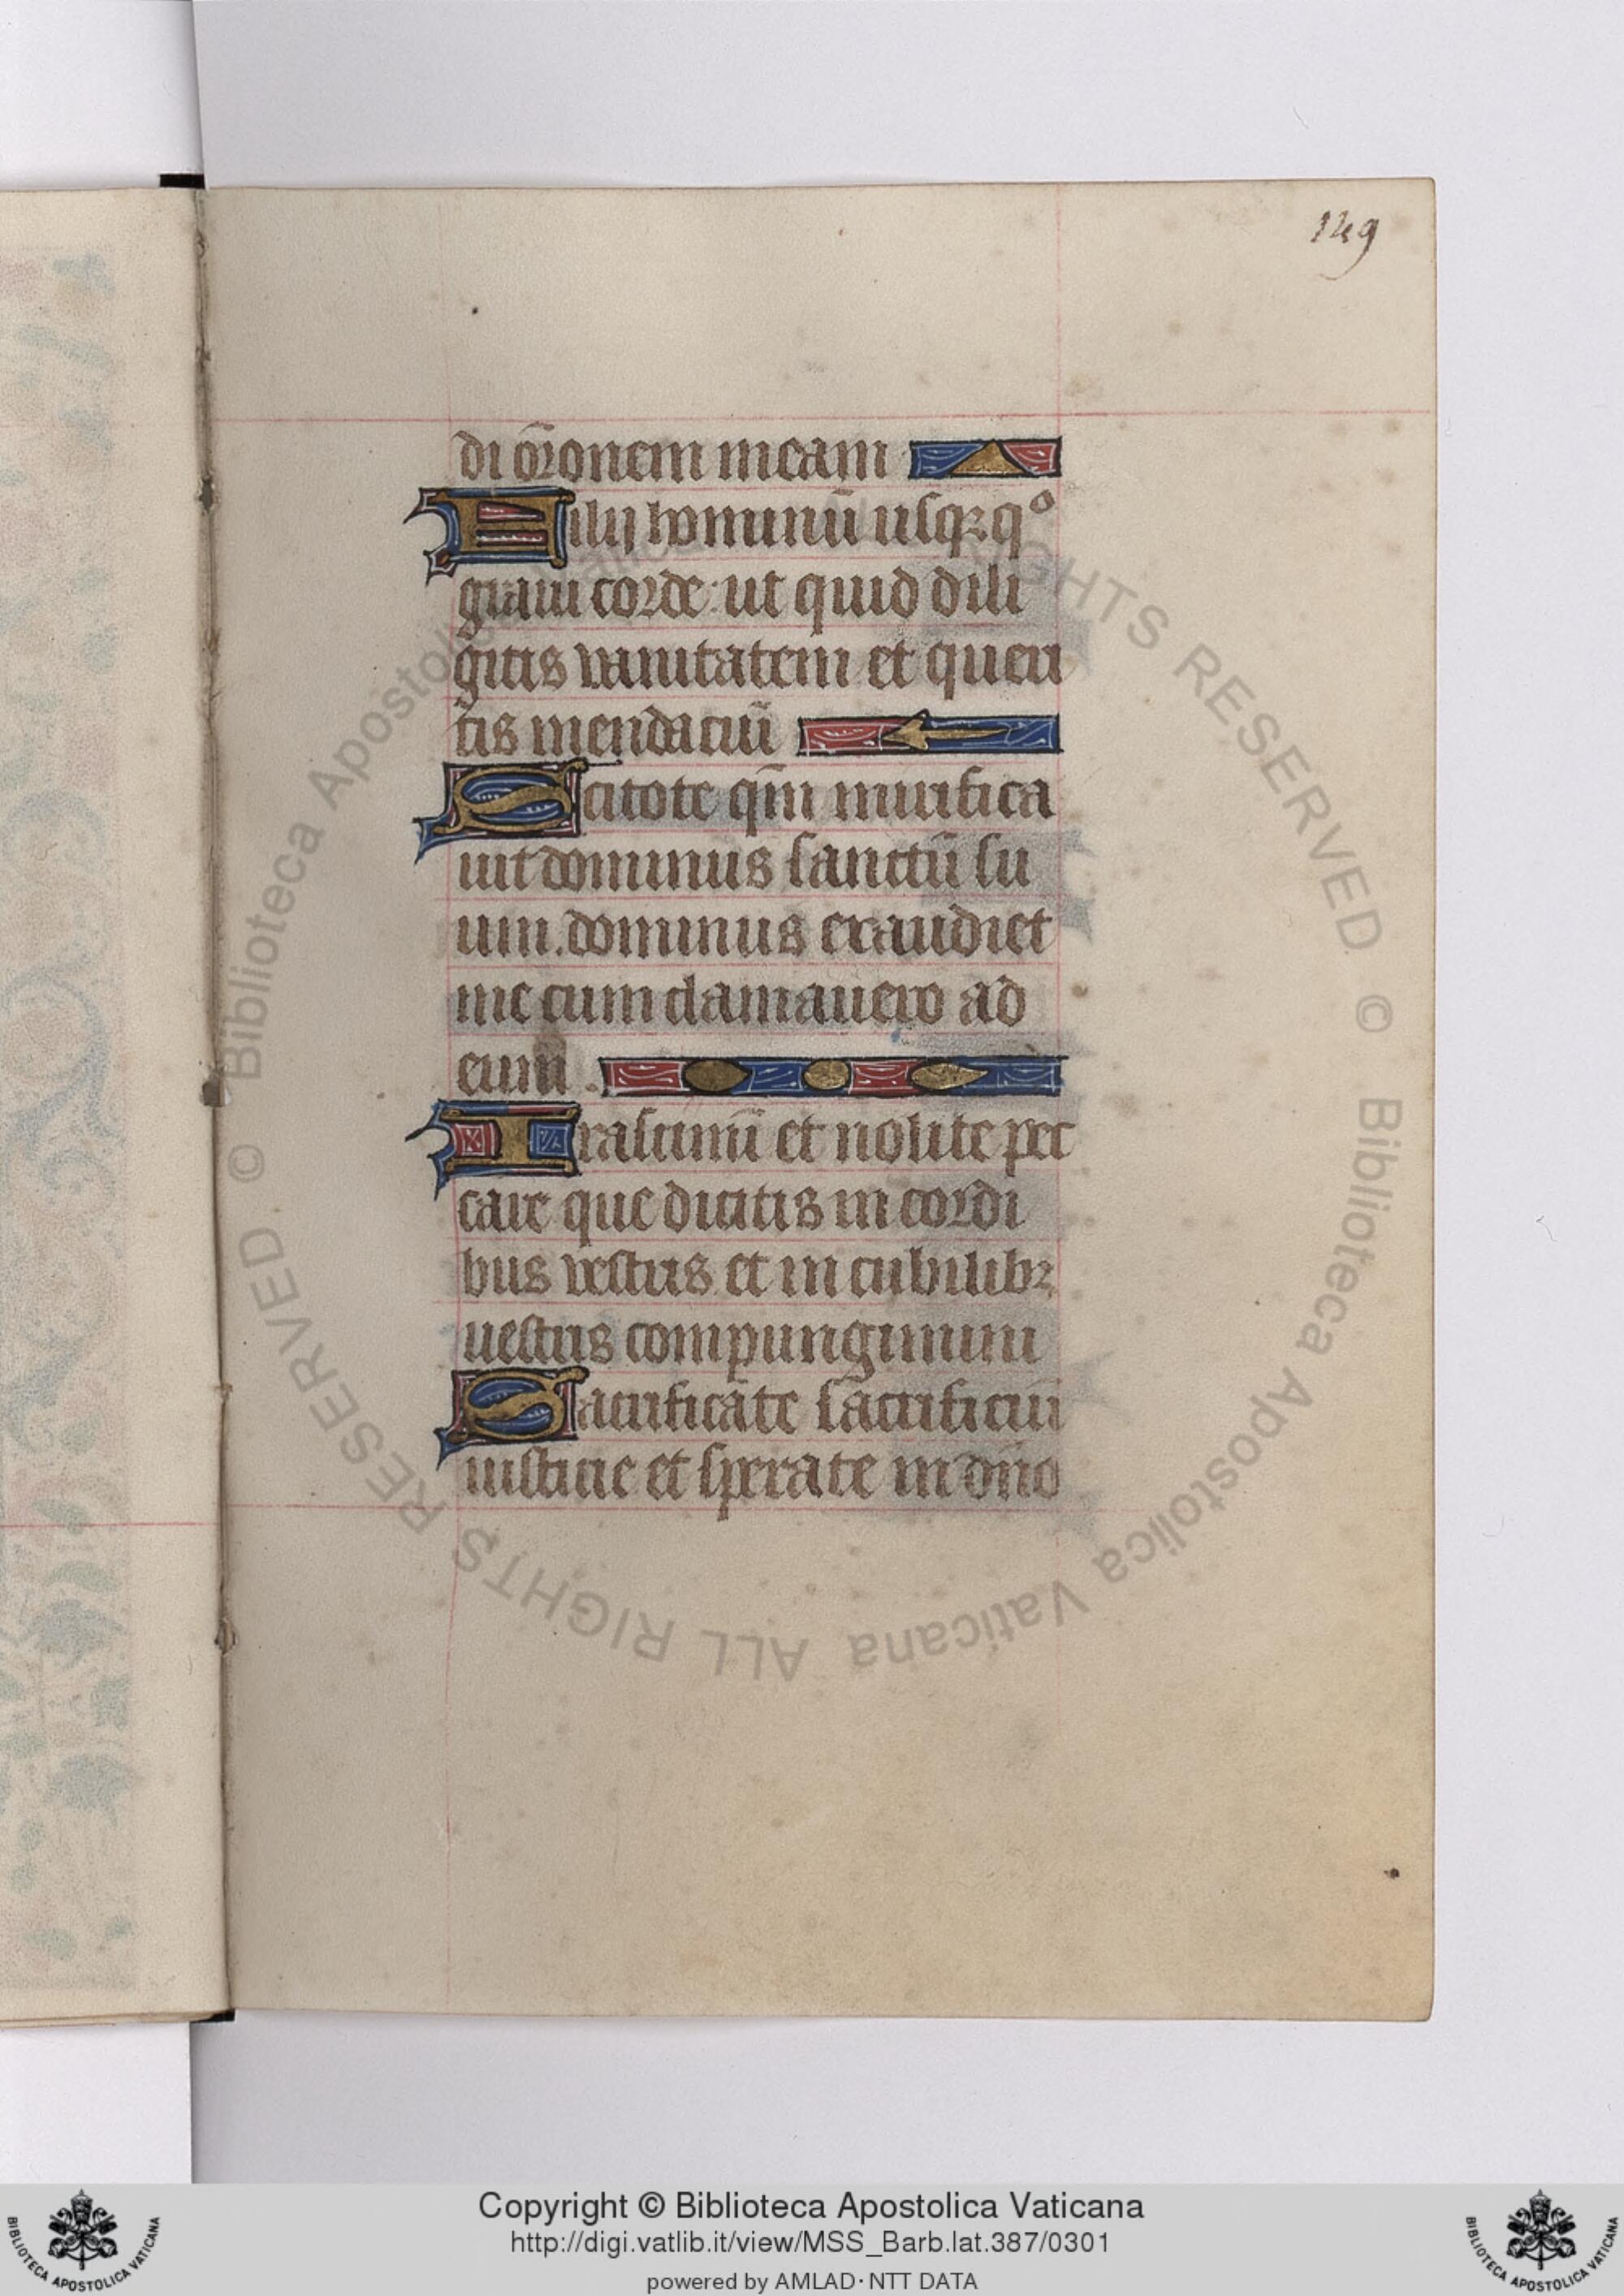 149
di or̄onem meam
Filij hominū usqꝫ qͦ
graui corde: ut quid dili
gitis vanitatem et queri
tis mendaciū
Scitote qm̄ mirifica
uit dominus sanctū su
um. dominus exaudiet
me cum clamauero ad
eum.
Irascimī et nolite pec
care que dicitis in cordi
bus vestris et in cubilibꝫ
uestris compungimini
Sacrificate sacrificiū
iusticie et sperate in dn̄o
© Biblioteca Apostolica Vaticana ALL RIGHTS RESERVED
© Biblioteca Apostolica Vaticana ALL RIGHTS RESERVED
Copyright © Biblioteca Apostolica Vaticana
http://digi.vatlib.it/view/MSS_Barb.lat.387/0301
powered by AMLAD·NTT DATA
BIBLIOTECA APOSTOLICA VATICANA
BIBLIOTECA APOSTOLICA VATICANA